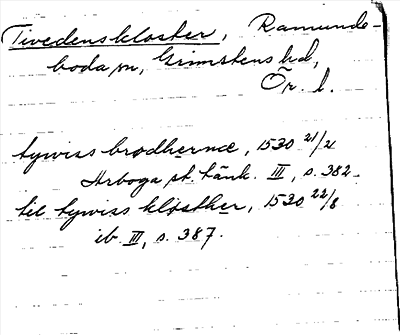 Tivedenskloster, Ramunde-
boda sn, Grimstens hd,
Ör. l.
tywiss brodhernæ, 1530 21/2
Arboga st. tänk. III, s. 382.
til tywiss kløsther, 1530 22/8
ib. III, s. 387.